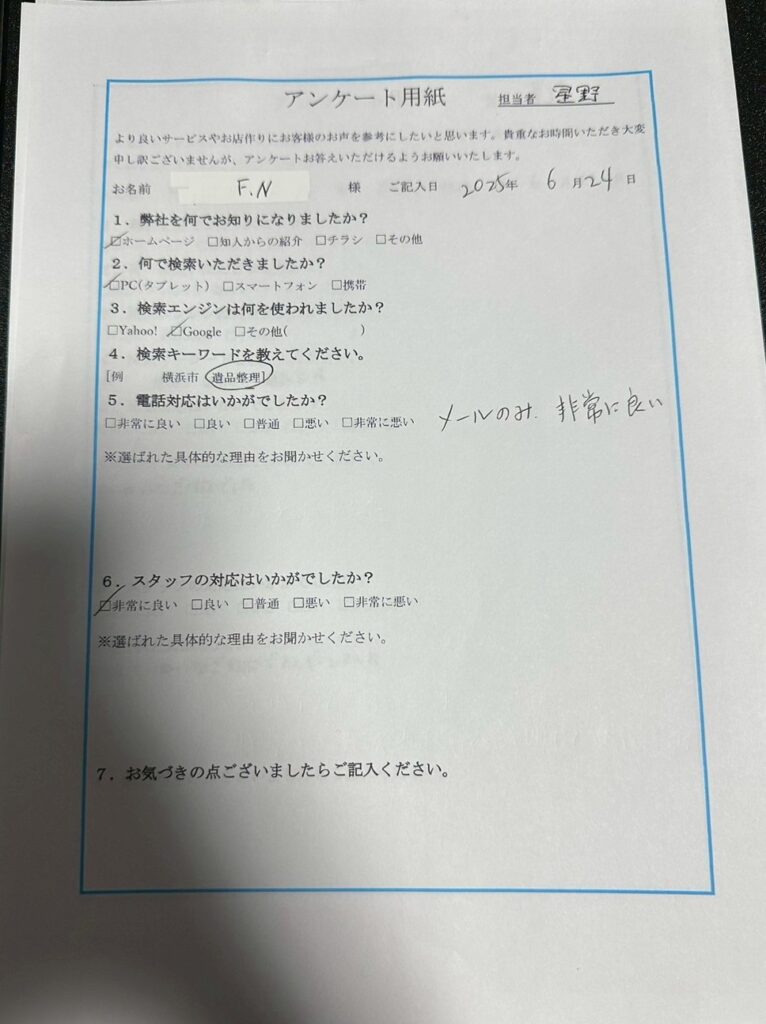 アンケート用紙 担当者 星野
より良いサービスやお店作りにお客様のお声を参考にしたいと思います。貴重なお時間いただき大変
申し訳ございませんが、アンケートお答えいただけるようお願いいたします。
お名前 F.N 様 ご記入日 2025年 6月24日
1．弊社を何でお知りになりましたか？
☑ホームページ □知人からの紹介 □チラシ □その他
2．何で検索いただきましたか？
☑PC(タブレット) □スマートフォン □携帯
3．検索エンジンは何を使われましたか？
□Yahoo! ☑Google □その他( )
4．検索キーワードを教えてください。
[例 横浜市 遺品整理]
5．電話対応はいかがでしたか？
□非常に良い □良い □普通 □悪い □非常に悪い メールのみ、非常に良い
※選ばれた具体的な理由をお聞かせください。
6．スタッフの対応はいかがでしたか？
☑非常に良い □良い □普通 □悪い □非常に悪い
※選ばれた具体的な理由をお聞かせください。
7．お気づきの点ございましたらご記入ください。